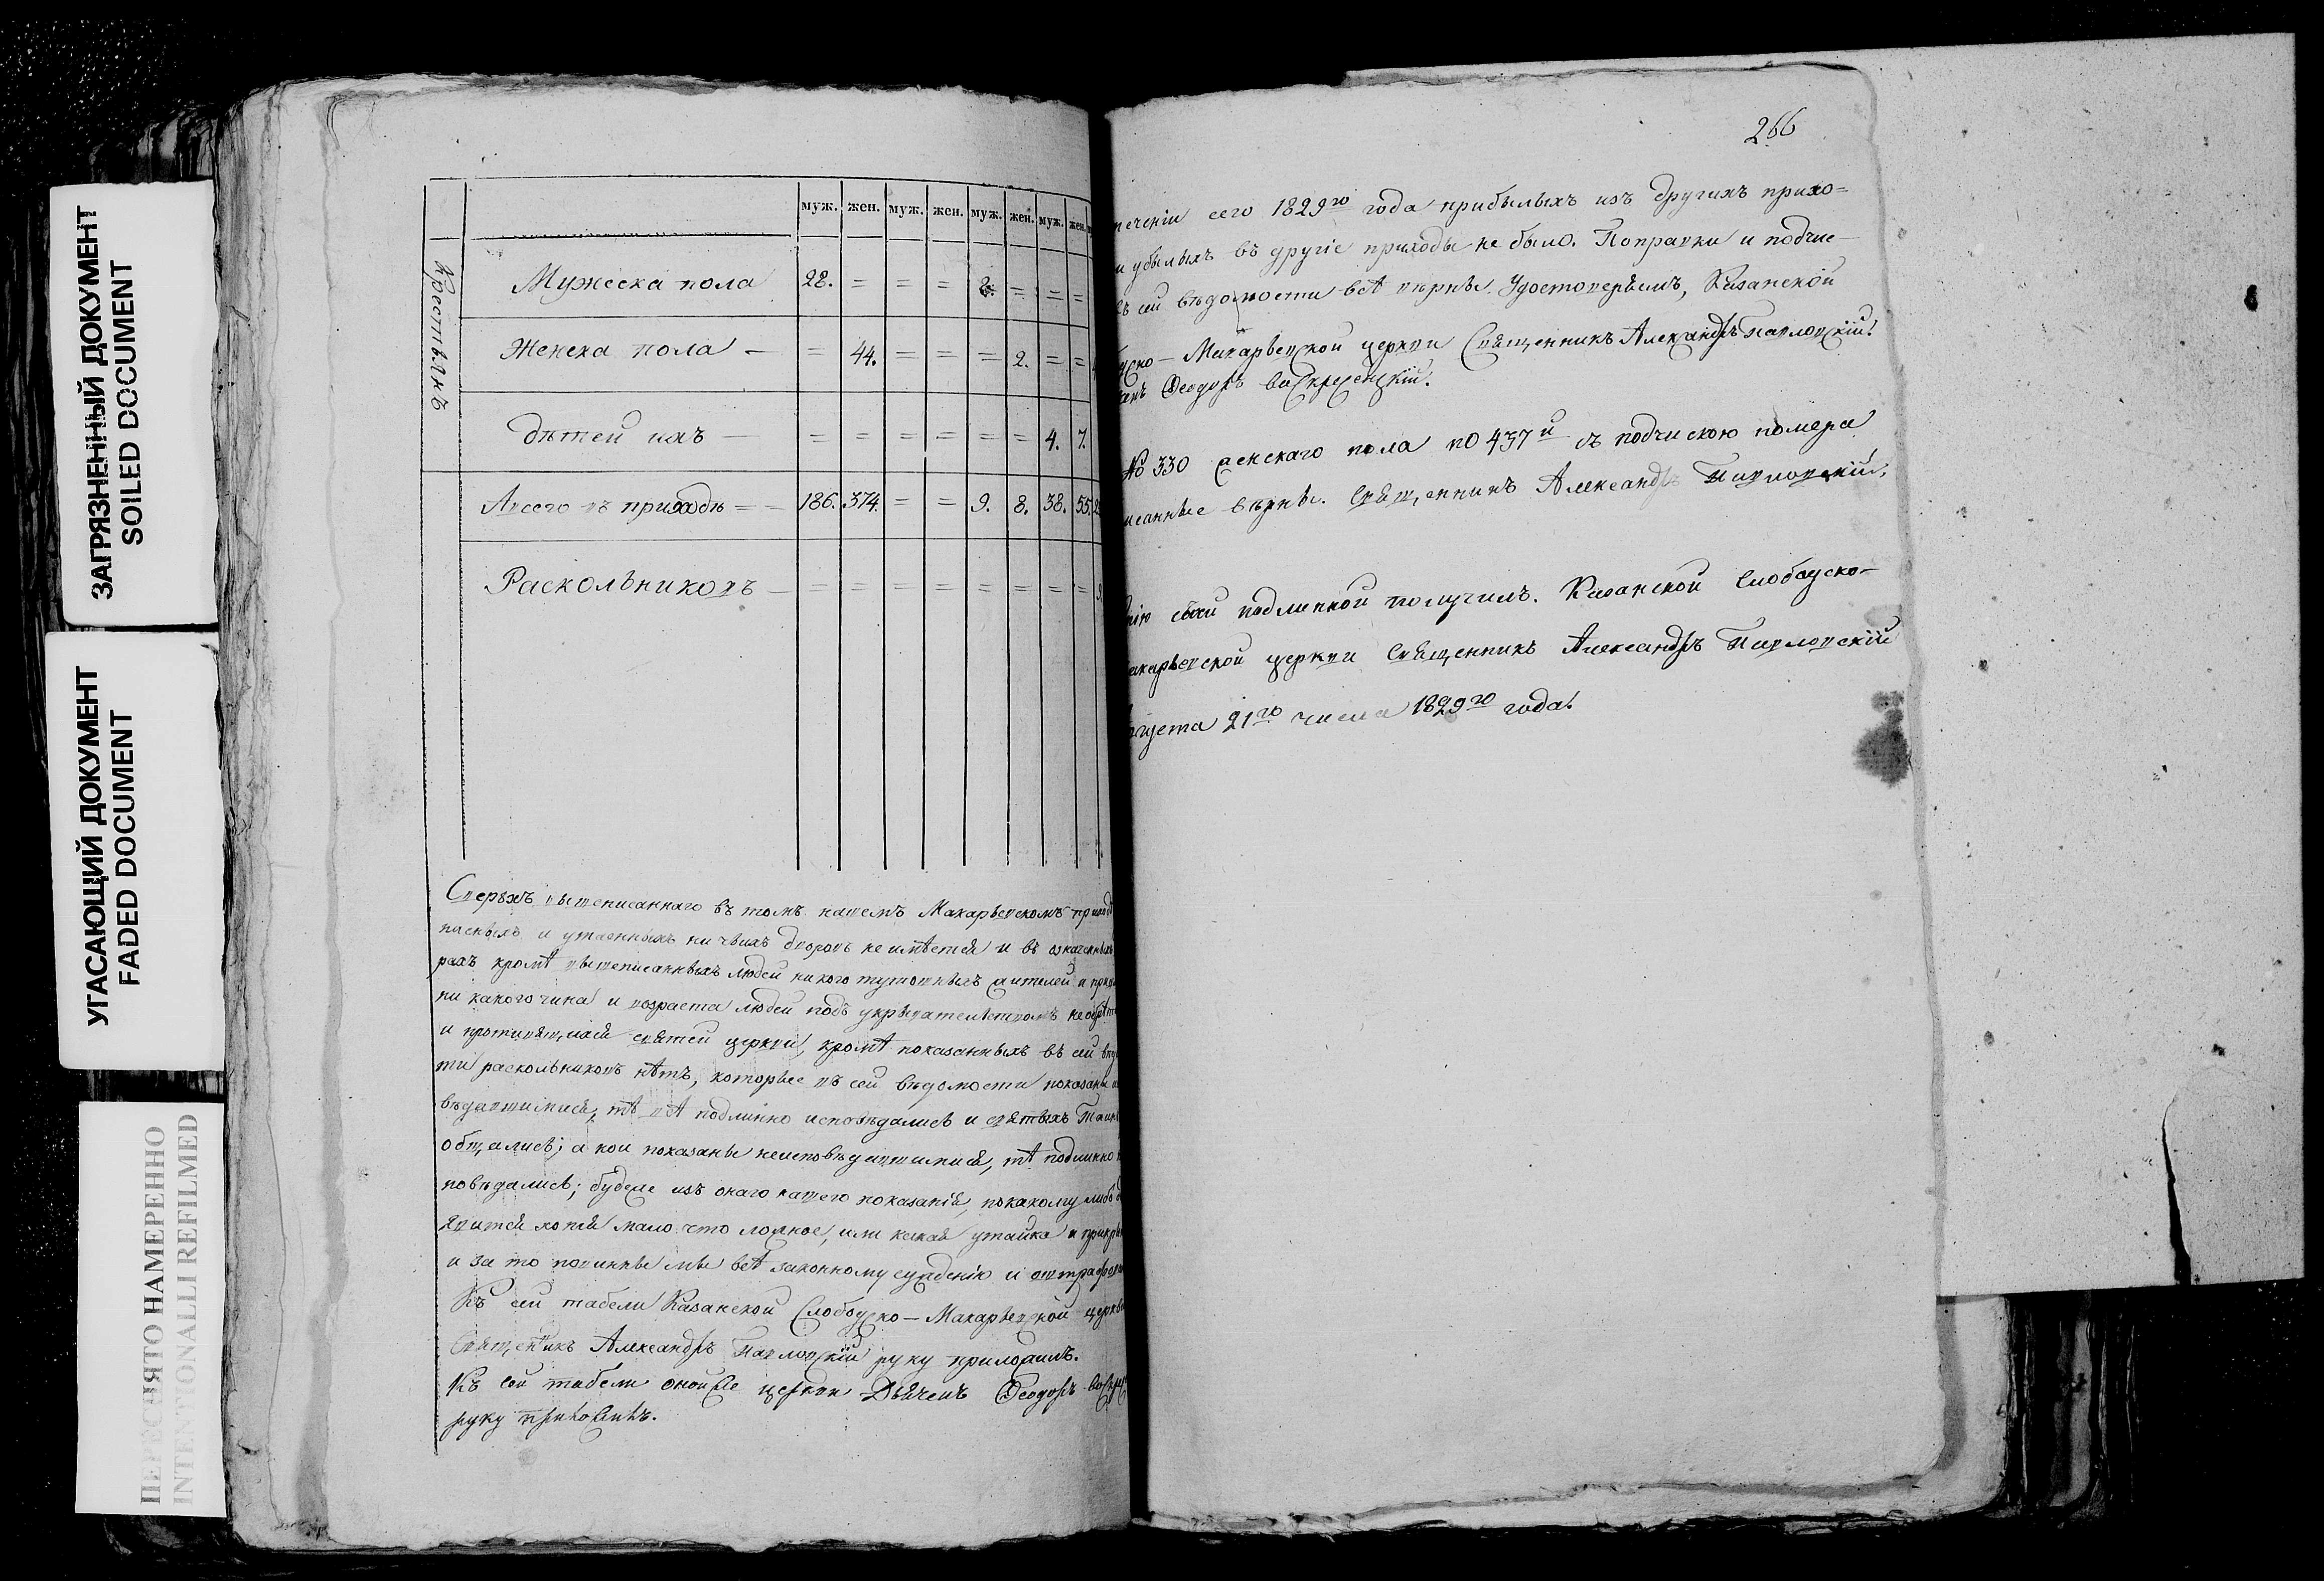 ЗАГРЯЗНЕННЫЙ ДОКУМЕНТ
SOILED DOCUMENT
УГАСАЮЩИЙ ДОКУМЕНТ
FADED DOCUMENT
ПЕРЕСНЯТО НАМЕРЕННО
INTENTIONALLI REFILMED
муж. жен. муж. жен. муж. жен. муж. жен.
Крестьянъ
Мужеска пола 28. = = = 2. = = =
Женска пола — = 44. = = = 2. = =
дѣтей ихъ — = = = = = = 4. 7.
Всего въ приходѣ = — 186. 374. = = 9. 8. 38. 55.
Раскольниковъ — = = = = = = = =
Сверьхъ вышеписаннаго въ томъ нашемъ Макарьевскомъ
и утаенныхъ ни чьихъ дворовъ не имѣется и въ означенныхъ
рахъ кромѣ вышеписанныхъ людей никого тутошныхъ жителей и
ни какого чина и возраста людей подъ укрывательствомъ не
и противящихся святей церкви, кромѣ показанныхъ въ сей
ти раскольниковъ нѣтъ, которые въ сей вѣдомости показаны
вѣдавшимися, тѣ всѣ подлинно исповѣдались и святыхъ
общались; а кои показаны неисповѣдавшимися, тѣ подлинно
повѣдались; буде же изъ онаго нашего показанія, по какому либо
явится хотя мало что ложное, или какая утайка и
и за то повинны мы всѣ законному сужденію и
Къ сей табели Казанской Слободско — Макарьевской церкви
Священникъ Александръ Павловскій руку приложилъ.
Къ сей табели оной же церкви Дьячекъ Ѳеодоръ
руку приложилъ.
266
течении сего 1829го года прибылыхъ изъ другихъ прихо=
и убылыхъ въ другіе приходы не было. Поправки и подчис—
въ сей вѣдомости всѣ вѣрны. Удостовѣряемъ, Казанской
— Макарьевской церкви Священникъ Александръ Павловскій.
Ѳеодоръ Воскресенский.
№ 330 женскаго пола по 437й съ подпискою номера
вѣрны. Священникъ Александръ Павловскій.
сей подлинной получилъ. Казанской Слободско—
Макарьевской церкви Священникъ Александръ Павловскій
Августа 21го числа 1829го года.